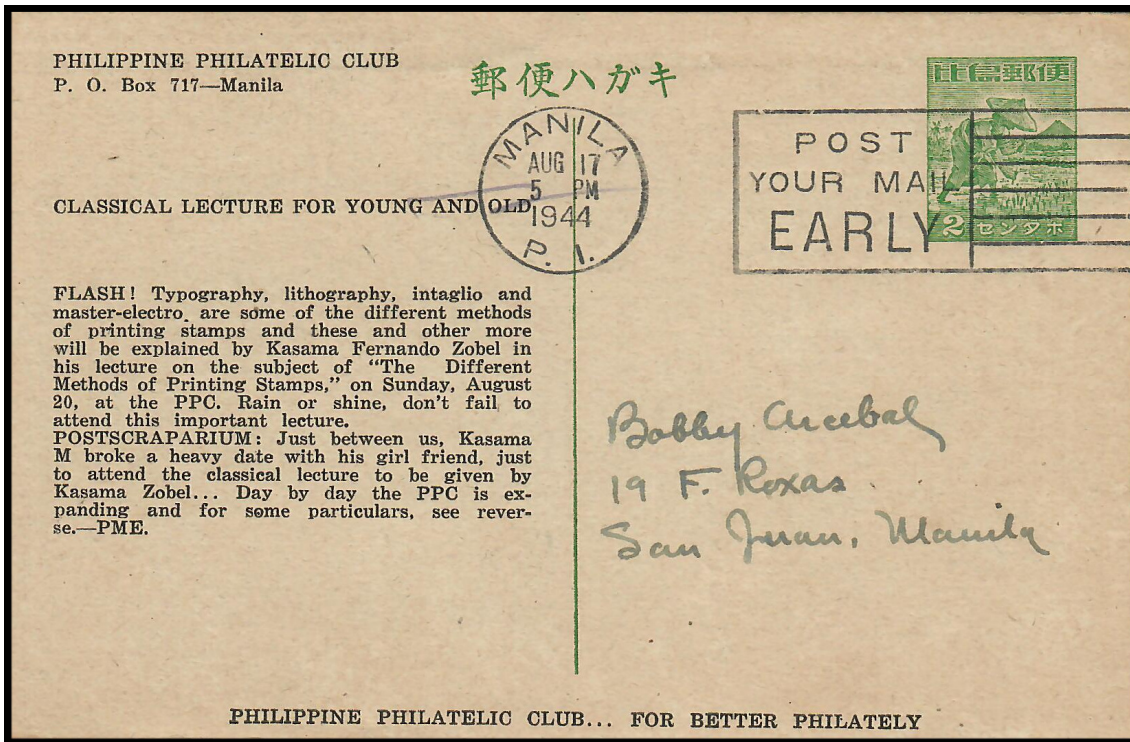 PHILIPPINE PHILATELIC CLUB
P. O. Box 717—Manila
郵便ハガキ
比島郵便
2 センタボ
MANILA
AUG 17
5 PM
1944
P. I.
POST
YOUR MAIL
EARLY
CLASSICAL LECTURE FOR YOUNG AND OLD
FLASH! Typography, lithography, intaglio and
master-electro. are some of the different methods
of printing stamps and these and other more
will be explained by Kasama Fernando Zobel in
his lecture on the subject of “The Different
Methods of Printing Stamps,” on Sunday, August
20, at the PPC. Rain or shine, don’t fail to
attend this important lecture.
POSTSCRAPARIUM: Just between us, Kasama
M broke a heavy date with his girl friend, just
to attend the classical lecture to be given by
Kasama Zobel... Day by day the PPC is ex-
panding and for some particulars, see rever-
se.—PME.
Bobby Arcebal
19 F. Roxas
San Juan, Manila
PHILIPPINE PHILATELIC CLUB... FOR BETTER PHILATELY